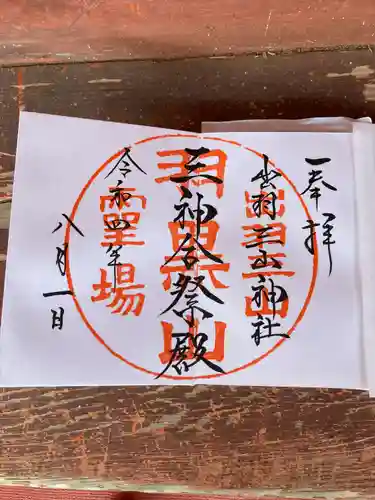 奉拝
出羽三山神社
三神合祭殿
令和四年
八月一日
出羽三山
羽黒山
霊場